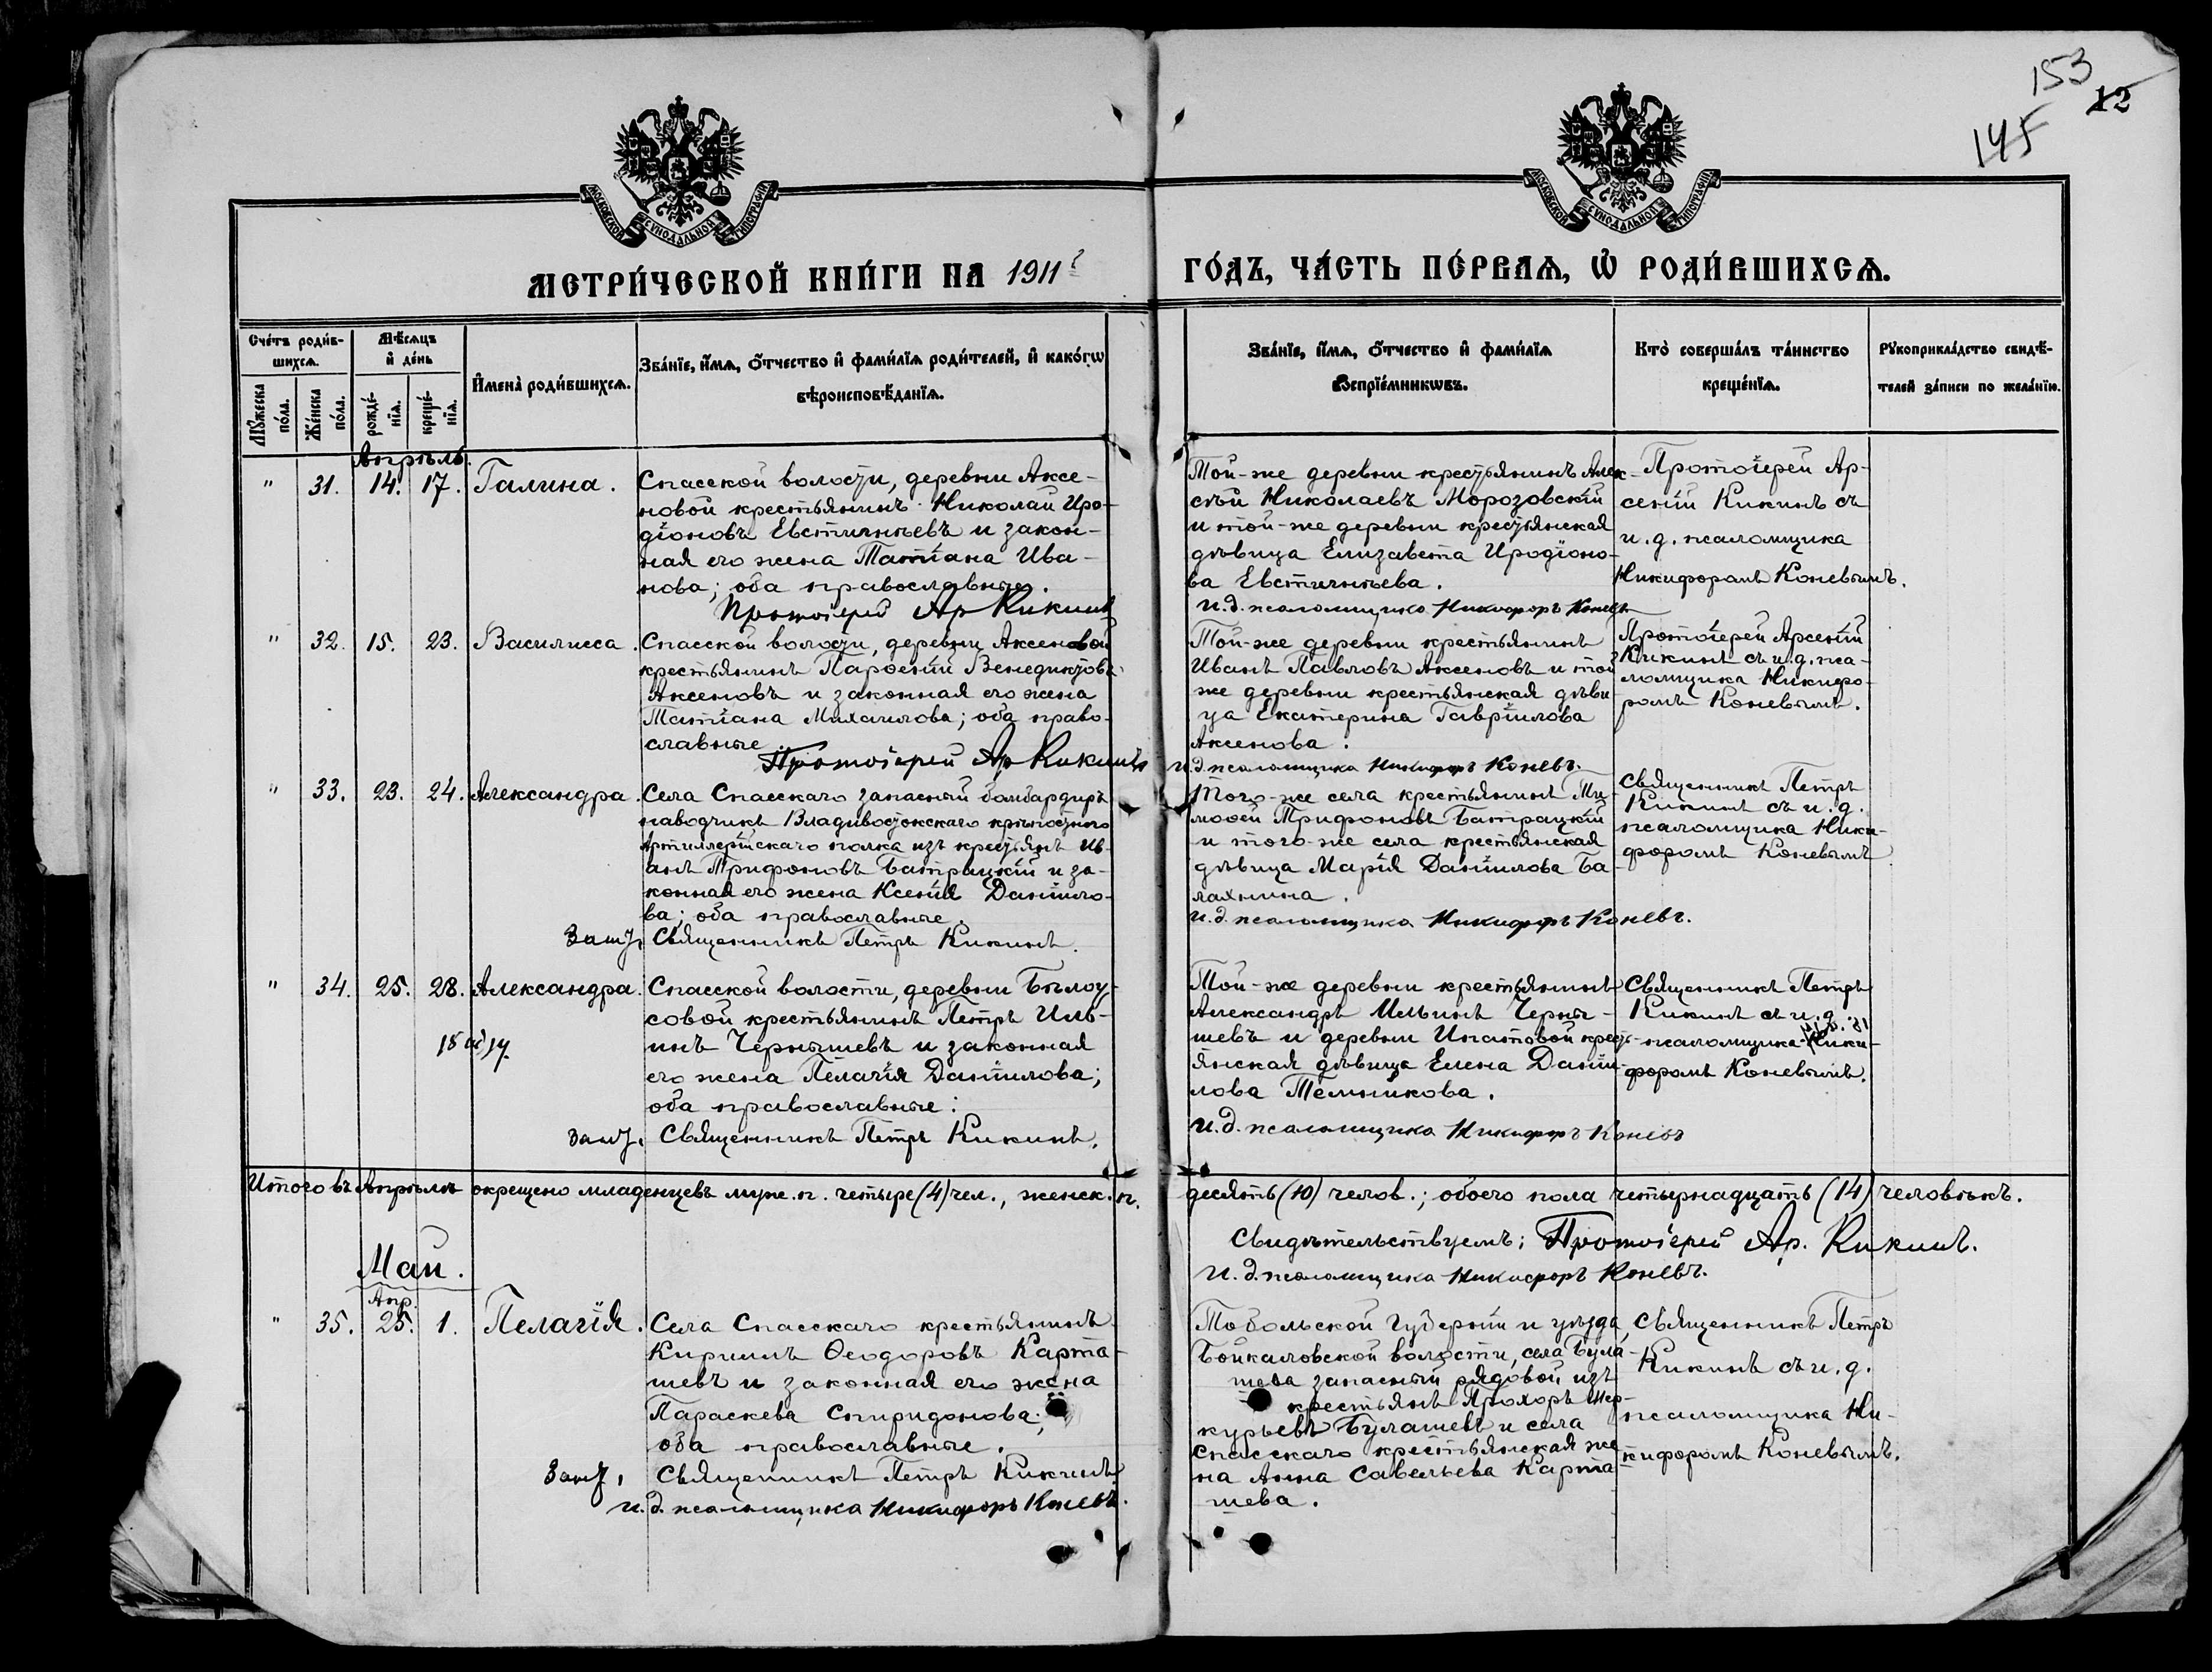 153
12
145
МОСКОВСКОЙ СѴНОДАЛЬНОЙ ТИПОГРАФІИ
МОСКОВСКОЙ СѴНОДАЛЬНОЙ ТИПОГРАФІИ
МЕТРИ́ЧЕСКОЙ КНИ́ГИ НА 1911 г
ГО́ДЪ, ЧА́СТЬ ПЕ́РВАѦ, Ѡ҆ РОДИ́ВШИХСѦ.
Сче́тъ роди́в-
шихсѧ.
Мѣ́сѧцъ
и҆ де́нь
Мꙋ́жеска
по́ла.
Же́нска
по́ла.
рожде́-
нїѧ.
креще́-
нїѧ.
И҆мена̀ роди́вшихсѧ.
Зва́нїе, и҆́мѧ, ѻ҆́тчество и҆ фами́лїѧ роди́телей, и҆ како́гѡ
вѣроисповѣ́данїѧ.
Зва́нїе, и҆́мѧ, ѻ҆́тчество и҆ фами́лїѧ
воспрїе́мникѡвъ.
Кто̀ соверша́лъ та́инство
креще́нїѧ.
Рꙋкоприкла́дство свидѣ́-
телей за́писи по жела́нїю.
Апрѣль.
" 31. 14. 17. Галина.
Спасской волости, деревни Аксе-
новой крестьянинъ Николай Иро-
діоновъ Евстигнѣевъ и закон-
ная его жена Татіана Ива-
нова; оба православные.
Протоіерей Ар Кикинъ
Той-же деревни крестьянинъ Алек-
сѣй Николаевъ Морозовскій
и той-же деревни крестьянская
дѣвица Елизавета Иродіоно-
ва Евстигнѣева.
и. д. псаломщика Никифоръ Коневъ
Протоіерей Ар-
сеній Кикинъ съ
и. д. псаломщика
Никифоромъ Коневымъ.
" 32. 15. 23. Василиса.
Спасской волости, деревни Аксеновой
крестьянинъ Парѳеній Венедиктовъ
Аксеновъ и законная его жена
Татіана Михаилова; оба право-
славные
Протоіерей Ар Кикинъ
Той-же деревни крестьянинъ
Иванъ Павловъ Аксеновъ и той
же деревни крестьянская дѣви
ца Екатерина Гавріилова
Аксенова.
и. д. псаломщика Никифоръ Коневъ.
Протоіерей Арсеній
Кикинъ съ и. д. пса-
ломщика Никифо-
ромъ Коневымъ.
" 33. 23. 24. Александра.
Села Спасскаго запасный бомбардиръ
наводчикъ Владивостокскаго крѣпостного
Артиллерійскаго полка изъ крестьянъ Ив-
анъ Трифоновъ Батрацкій и за-
конная его жена Ксенія Даніило-
ва; оба православные.
Священникъ Петръ Кикинъ.
Того-же села крестьянинъ Ти-
моѳей Трифоновъ Батрацкій
и того-же села крестьянская
дѣвица Марія Даніилова Ба
лахнина.
и. д. псаломщика Никифоръ Коневъ.
Священникъ Петръ
Кикинъ съ и. д.
псаломщика Ники-
форомъ Коневымъ
" 34. 25. 28. Александра.
Спасской волости, деревни Бѣлоу-
совой крестьянинъ Петръ Иль-
инъ Чернышевъ и законная
его жена Пелагія Даніилова;
оба православные:
Священникъ Петръ Кикинъ.
Той-же деревни крестьянинъ
Александръ Ильинъ Черны-
шевъ и деревни Ипатовой крест-
янская дѣвица Елена Даніи-
лова Темникова.
и. д. псаломщика Никифоръ Коневъ
Священникъ Петръ
Кикинъ съ и. д.
псаломщика Ники-
форомъ Коневымъ.
Итого въ Апрѣлѣ окрещено младенцевъ муж. п. четыре (4) чел., женск. п. десять (10) челов.; обоего пола четырнадцать (14) человѣкъ.
Свидѣтельствуемъ: Протоіерей Ар. Кикинъ.
И. д. псаломщика Никифоръ Коневъ.
Май.
Апр.
" 35. 25. 1. Пелагія.
Села Спасскаго крестьянинъ
Кириллъ Ѳеодоровъ Карта-
шевъ и законная его жена
Параскева Спиридонова;
оба православные.
Священникъ Петръ Кикинъ
и. д. псаломщика Никифоръ Коневъ.
Тобольской губерніи и уѣзда,
Бойкаловской волости, села Була-
шева запасный рядовой изъ
крестьянъ Прохоръ Мер-
курьевъ Булашевъ и села
Спасскаго крестьянская же
на Анна Савельева Карта
шева.
Священникъ Петръ
Кикинъ съ и. д.
псаломщика Ни-
кифоромъ Коневымъ.